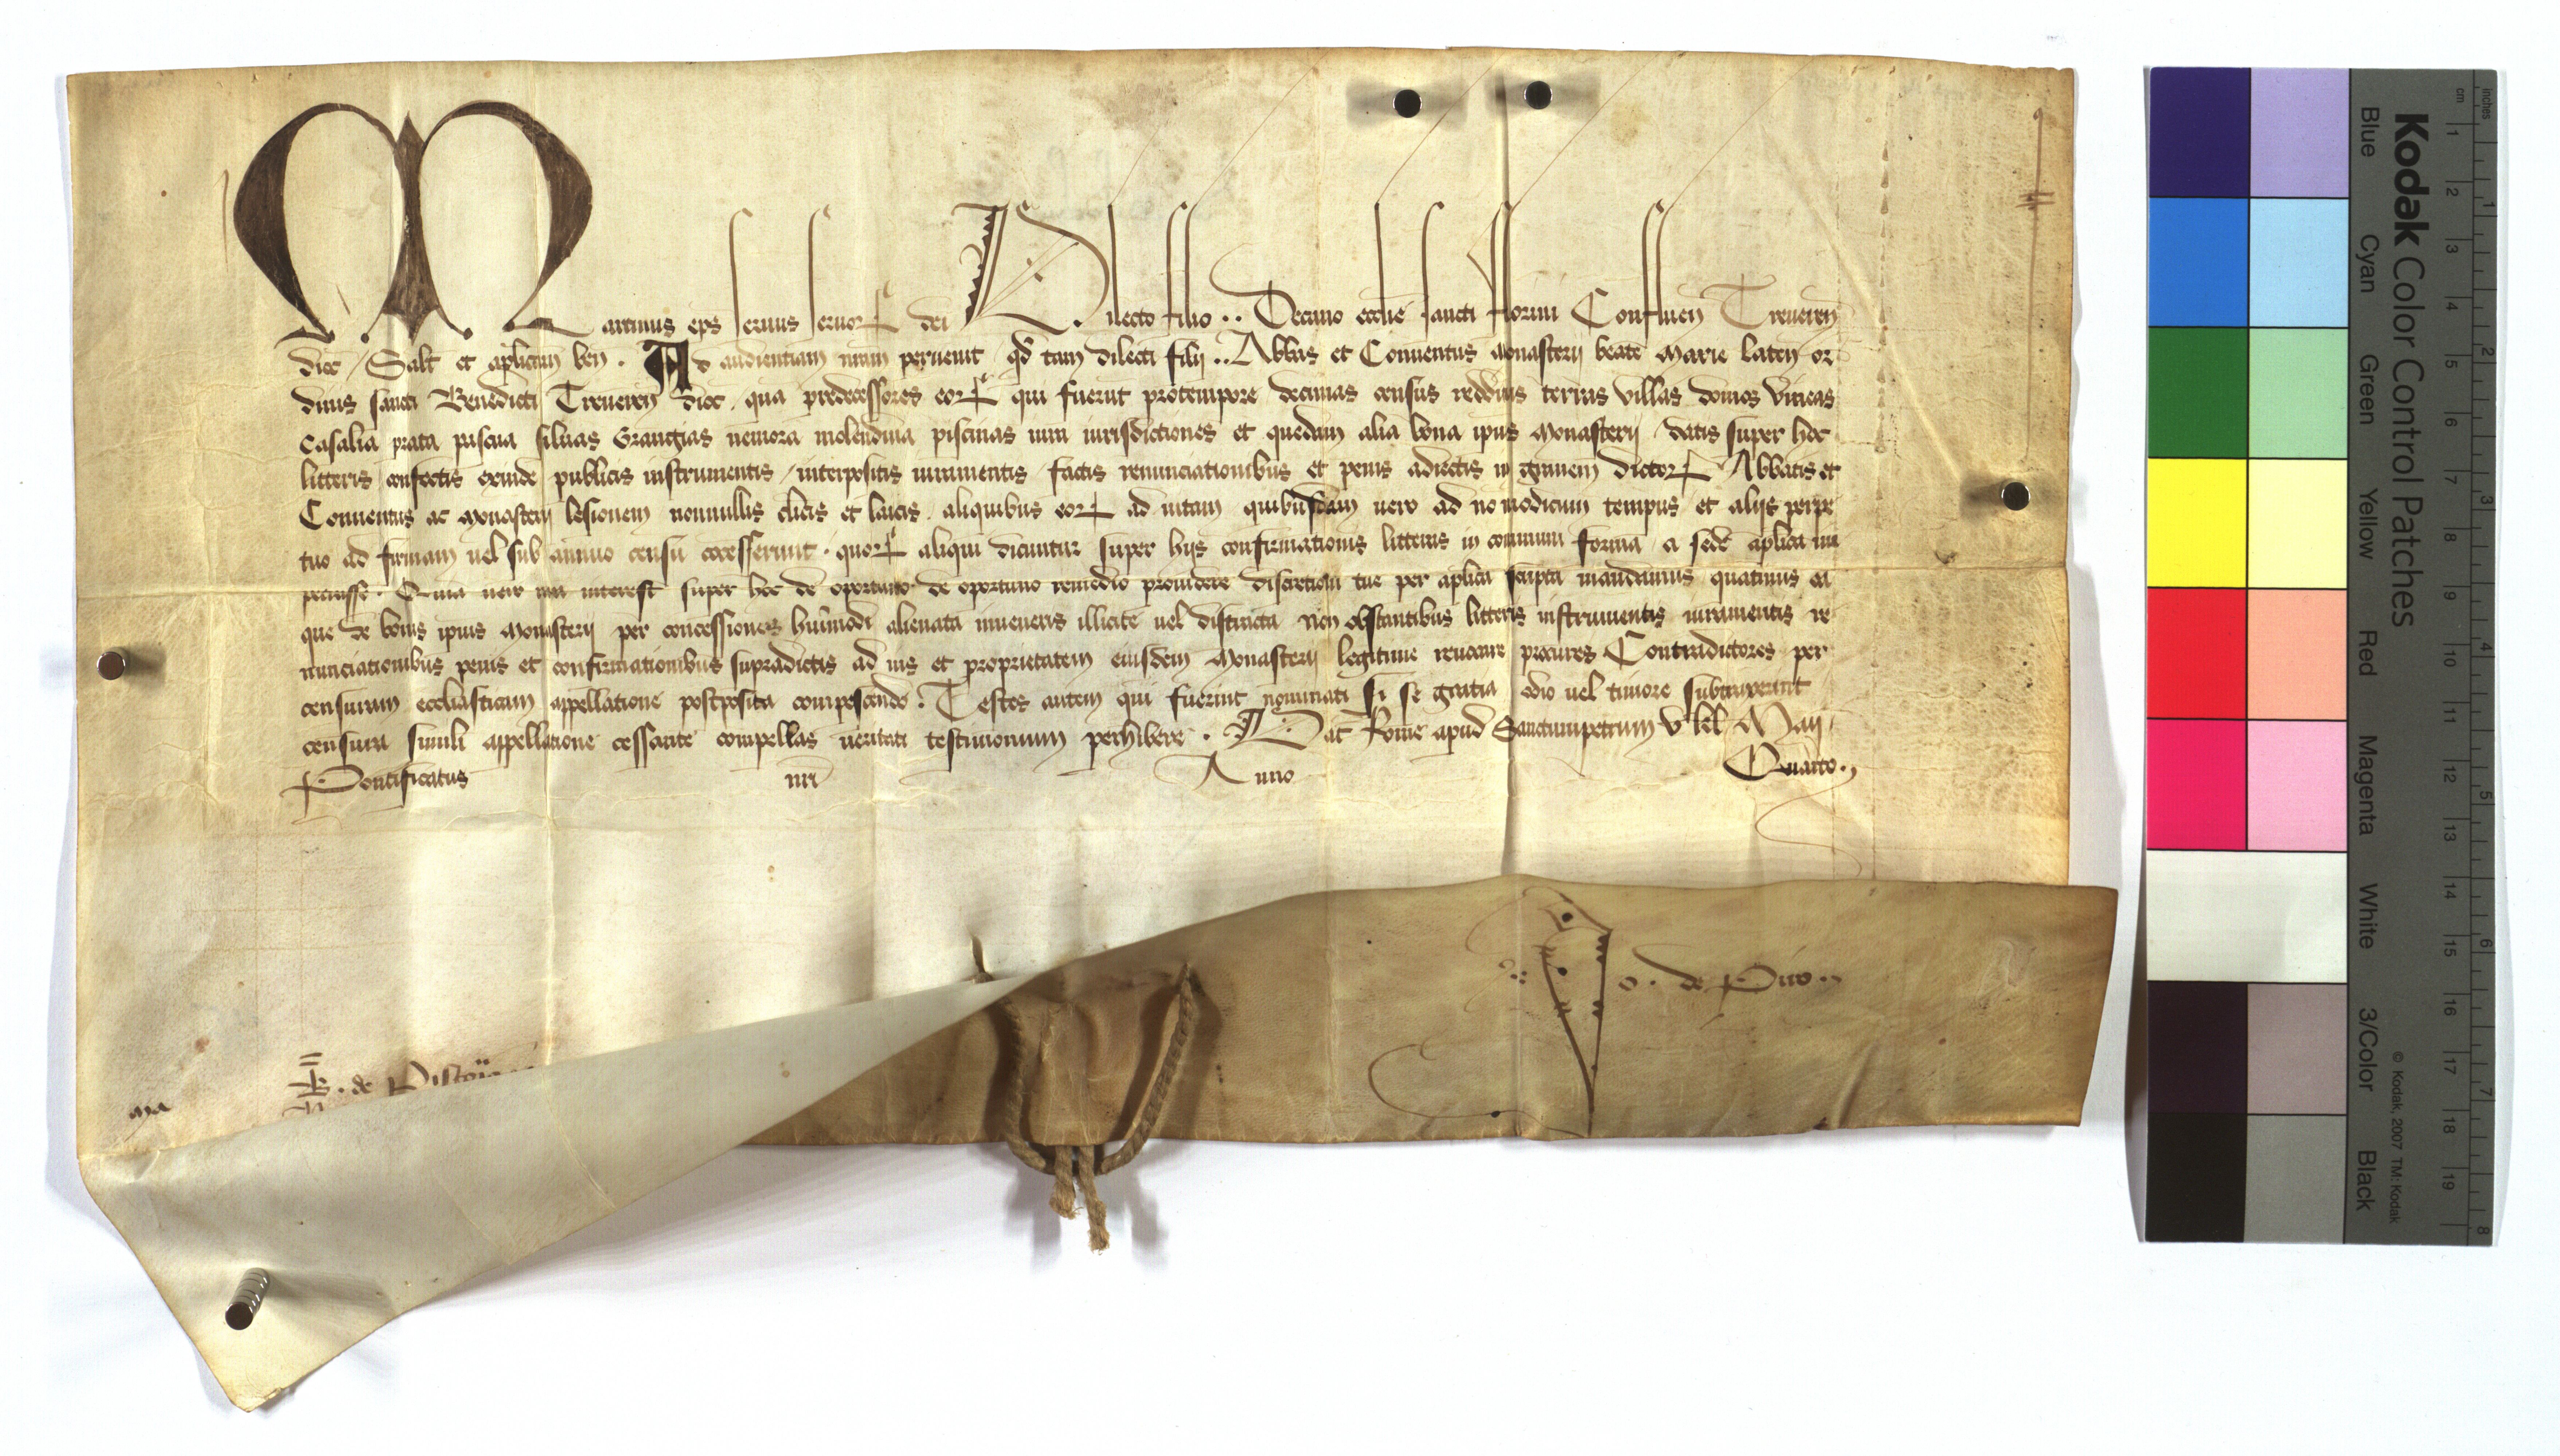 Martinus eps seruus seruoꝝ dei Dilecto filio .. Decano ecclie sancti fflorini Confluen Treueren
dioc Salt et aplicam ben . Ad audientiam nram peruenit qd tam dilecti filij .. Abbas et Conuentus Monasterij beate Marie Lacen or
dinis sancti Benedicti Treueren dioc qua predecessores eoꝝ qui fuerut protempore decimas census redditus terras villas domos vineas
Casalia prata pascua siluas Grangias nemora molendina piscinas iura iurisdictiones et quedam alia bona ipius Monasterij datis super hoc
litteris confectis exinde publicis instrumentis interpositis iuramentis factis renunciationibus et penis adiectis in grauem dictoꝝ Abbatis et
Conuentus ac Monasterij lesionem nonnullis clicis et laicis aliquibus eoꝝ ad uitam quibusdam uero ad no modicum tempus et alijs perpe
tuo ad firmam uel sub annuo censu cocesserunt . quoꝝ aliqui dicuntur super hijs confirmationis litteras in communi forma a sede aplica im
petrasse . Quia uero nra interest super hoc de oportuno de oportuno remedio prouidere discretioni tue per aplica scripta mandamus quatinus ea
que de bonis ipius Monasterij per concessiones huiusmodi alienata inueneris illicite uel distracta non obstantibus litteris instrumentis iuramentis re
nunciationibus penis et confirmationibus supradictis ad ius et proprietatem eiusdem Monasterij legitime reuocare procures Contradictores per
censuram ecclesiasticam appellatione postposita compescendo . Testes autem qui fuerint nominati si se gratia odio uel timore subtraxerint
censura simili appellatione cessante compellas ueritati testimonium perhibere . Dat Rome apud Sanctumpetrum v kl Maij
Pontificatus nri Anno Quarto .
o . de Puteo
B . de Pistorio
ma
Kodak Color Control Patches
Blue Cyan Green Yellow Red Magenta White 3/Color Black
© Kodak, 2007 TM: Kodak
inches 1 2 3 4 5 6 7 8
cm 1 2 3 4 5 6 7 8 9 10 11 12 13 14 15 16 17 18 19